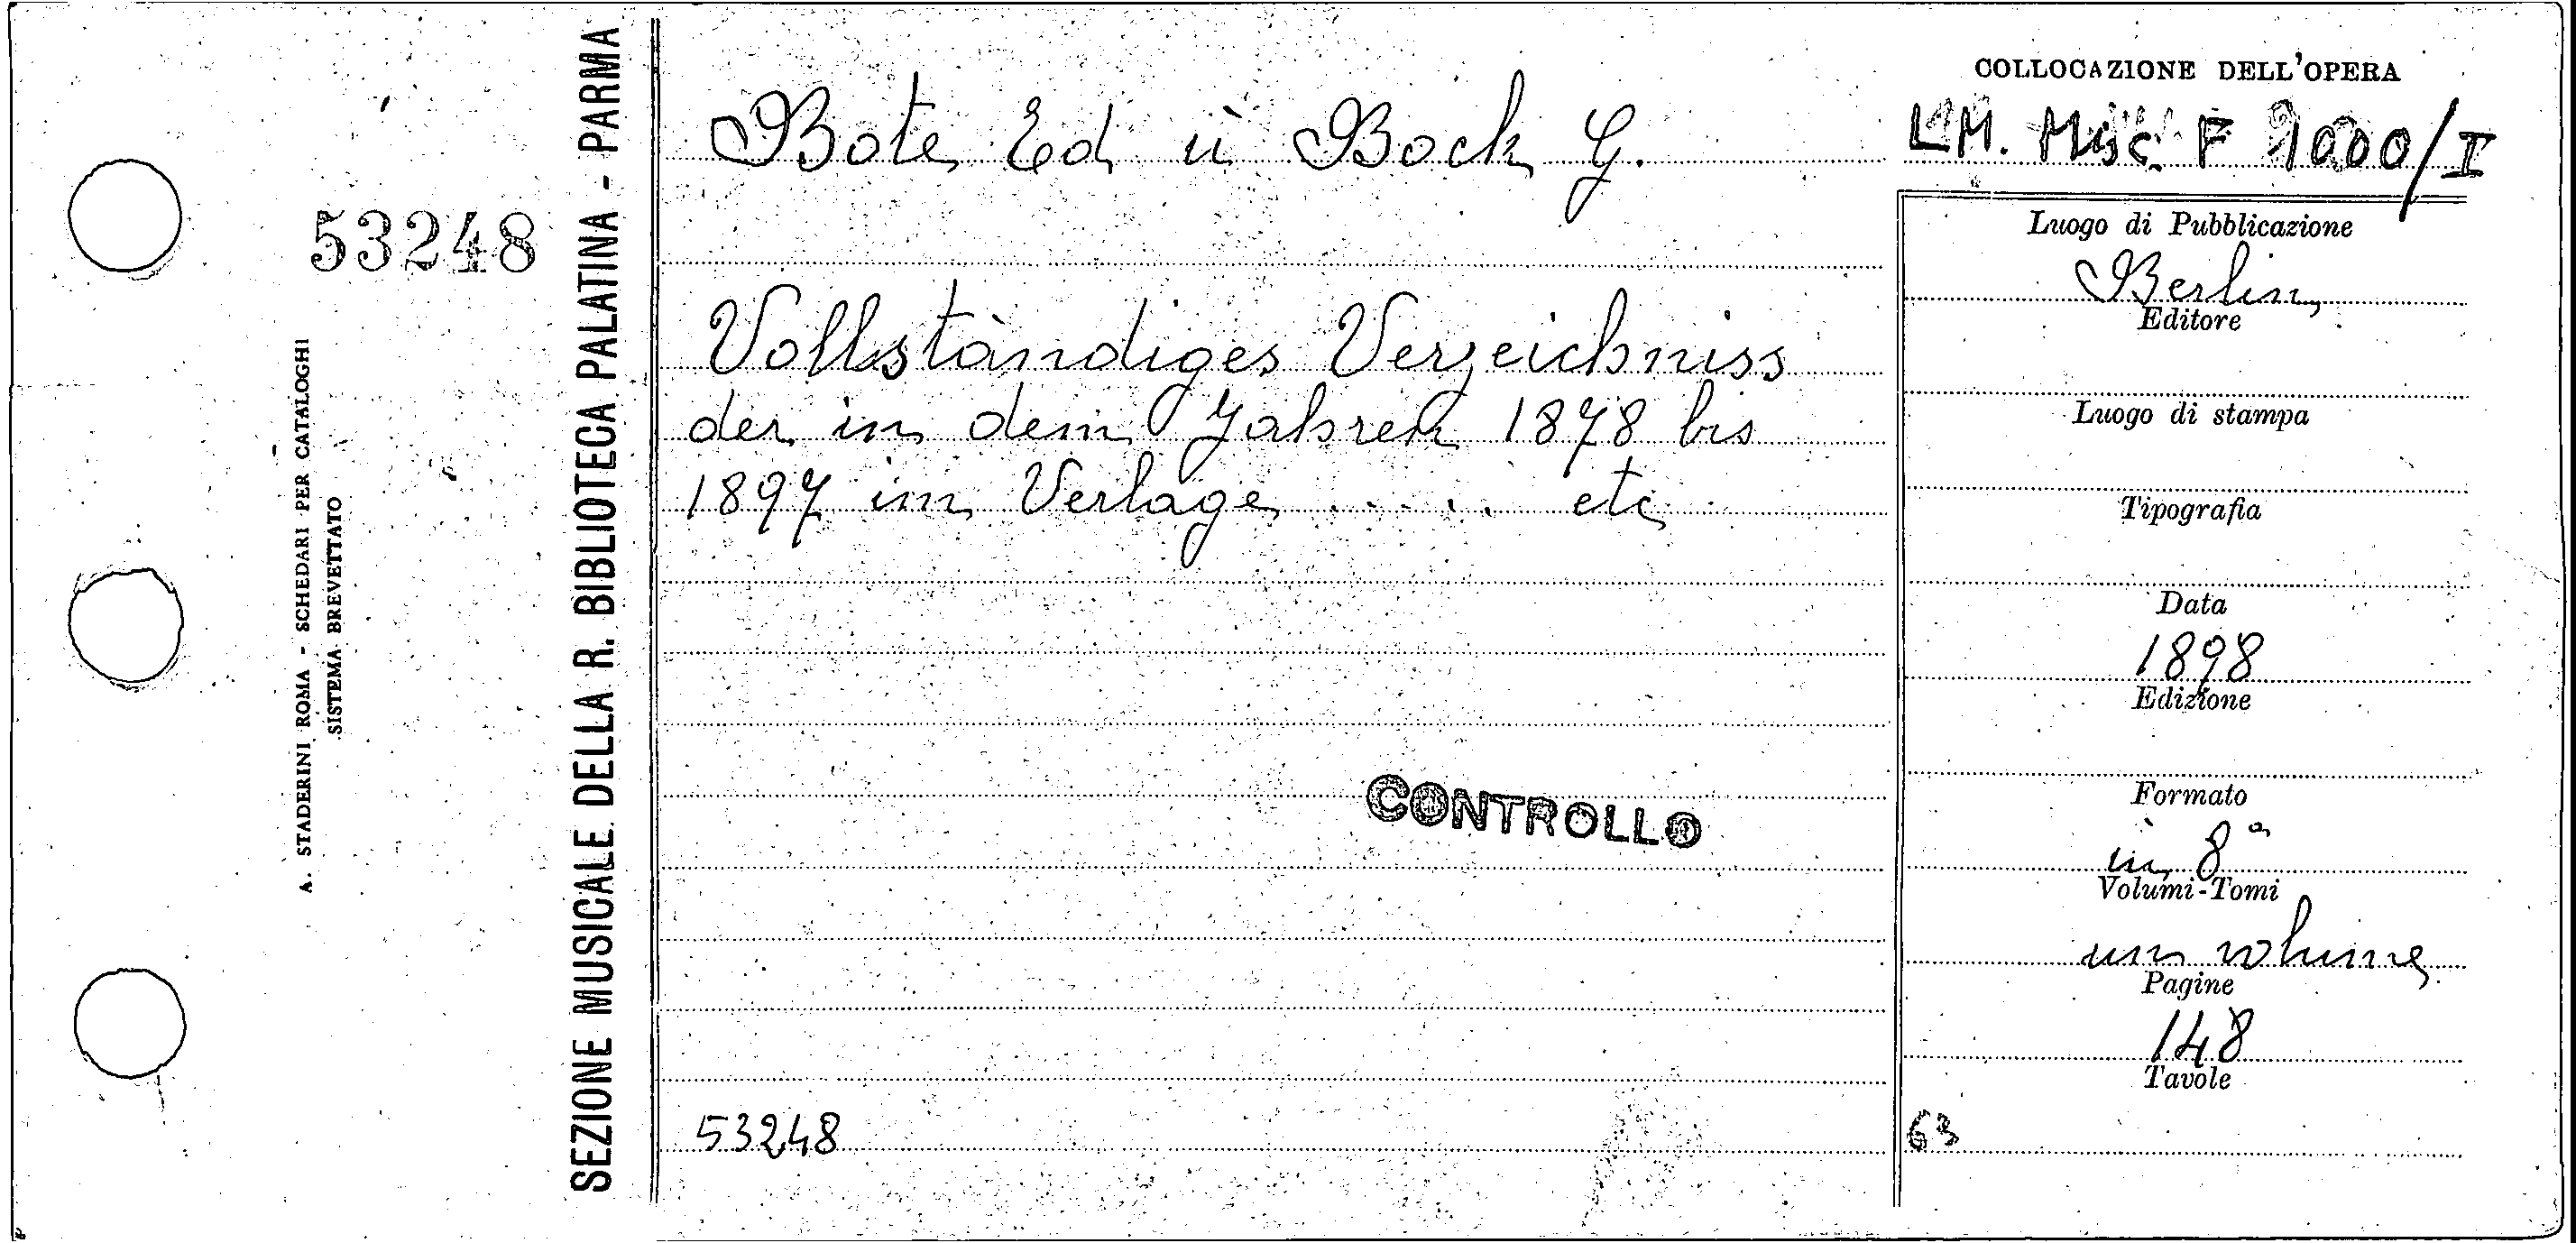 53248
A. STADERINI ROMA - SCHEDARI PER CATALOGHI
SISTEMA BREVETTATO
SEZIONE MUSICALE DELLA R. BIBLIOTECA PALATINA - PARMA
Bote Ed ü Bock G.
Vollständiges Verzeichniss
der in dem Jahren 1878 bis
1897 im Verlage ..... etc
CONTROLLO
53248
COLLOCAZIONE DELL'OPERA
Misc F 1000/I
Luogo di Pubblicazione
Berlin
Editore
Luogo di stampa
Tipografia
Data
1898
Edizione
Formato
in 8°
Volumi-Tomi
un volume
Pagine
148
Tavole
63